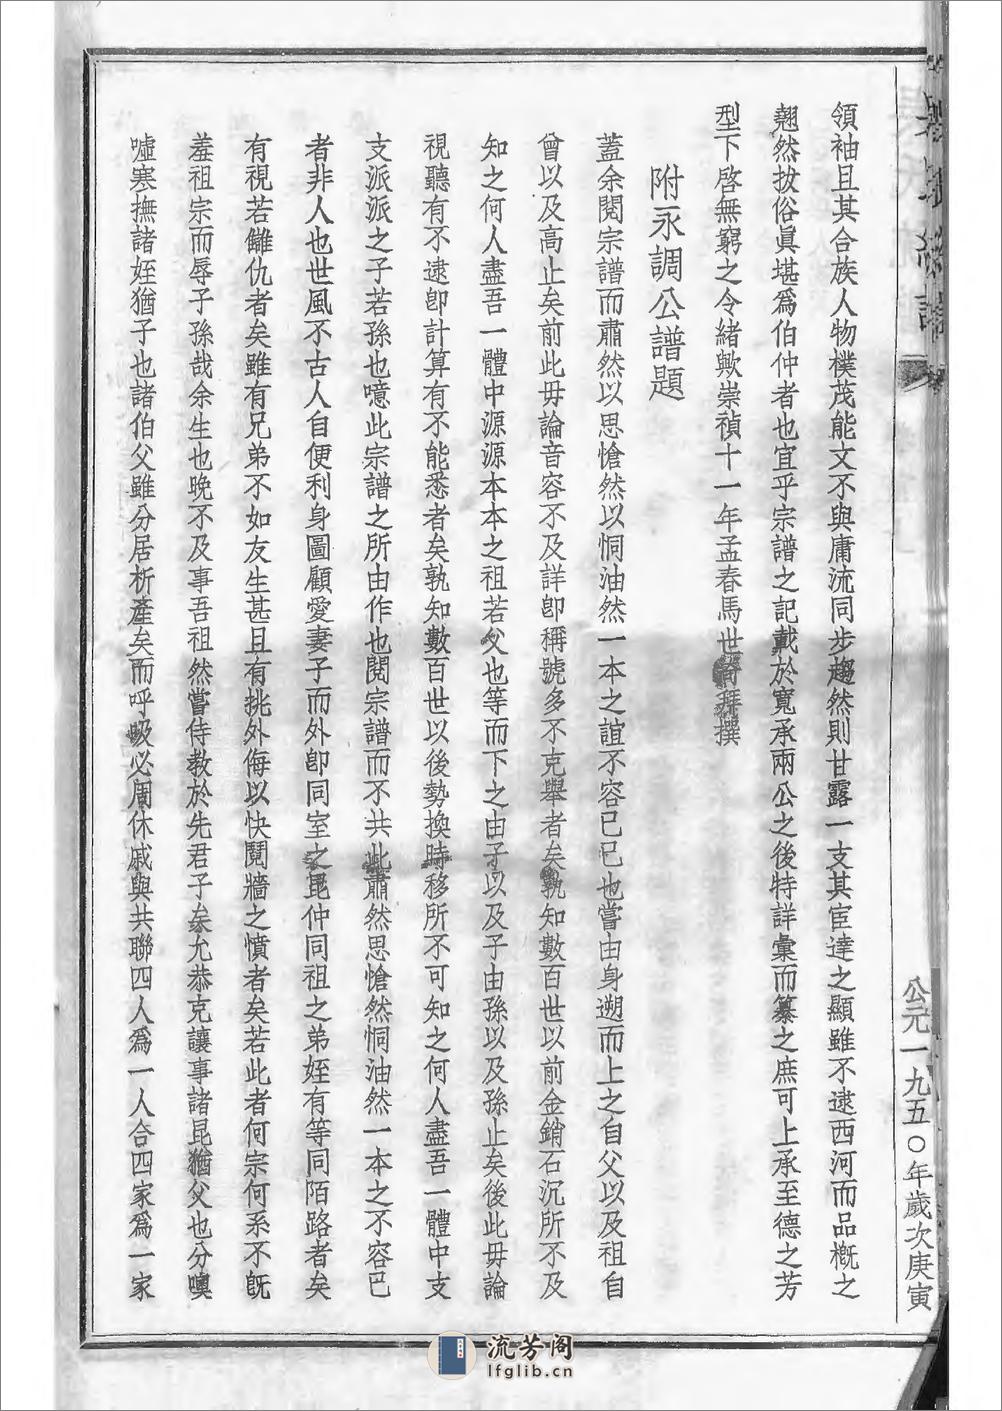 公元一九五〇年歲次庚寅
領袖且其合族人物樸茂能文不與庸流同步趨然則甘露一支其宦達之顯雖不逮西河而品概之
翹然拔俗眞堪爲伯仲者也宜乎宗譜之記載於寬承兩公之後特詳彙而纂之庶可上承至德之芳
型下啓無窮之令緒歟崇禎十一年孟春馬世拜撰
附永調公譜題
蓋余閱宗譜而肅然以思愴然以恫油然一本之誼不容已已也嘗由身遡而上之自父以及祖自
曾以及高止矣前此毋論音容不及詳卽稱號多不克舉者矣孰知數百世以前金銷石沉所不及
知之何人盡吾一體中源源本本之祖若父也等而下之由子以及子由孫以及孫止矣後此毋論
視聽有不逮卽計算有不能悉者矣孰知數百世以後勢換時移所不可知之何人盡吾一體中支
支派派之子若孫也噫此宗譜之所由作也閱宗譜而不共此肅然思愴然恫油然一本之不容已
者非人也世風不古人自便利身圖顧愛妻子而外卽同室之昆仲同祖之弟姪有等同陌路者矣
有視若雠仇者矣雖有兄弟不如友生甚且有挑外侮以快鬩牆之憤者矣若此者何宗何系不旣
羞祖宗而辱子孫哉余生也晚不及事吾祖然嘗侍教於先君子矣允恭克讓事諸昆猶父也分噢
噓寒撫諸姪猶子也諸伯父雖分居析產矣而呼吸必周休戚與共聯四人爲一人合四家爲一家
流芳阁
lfglib.cn